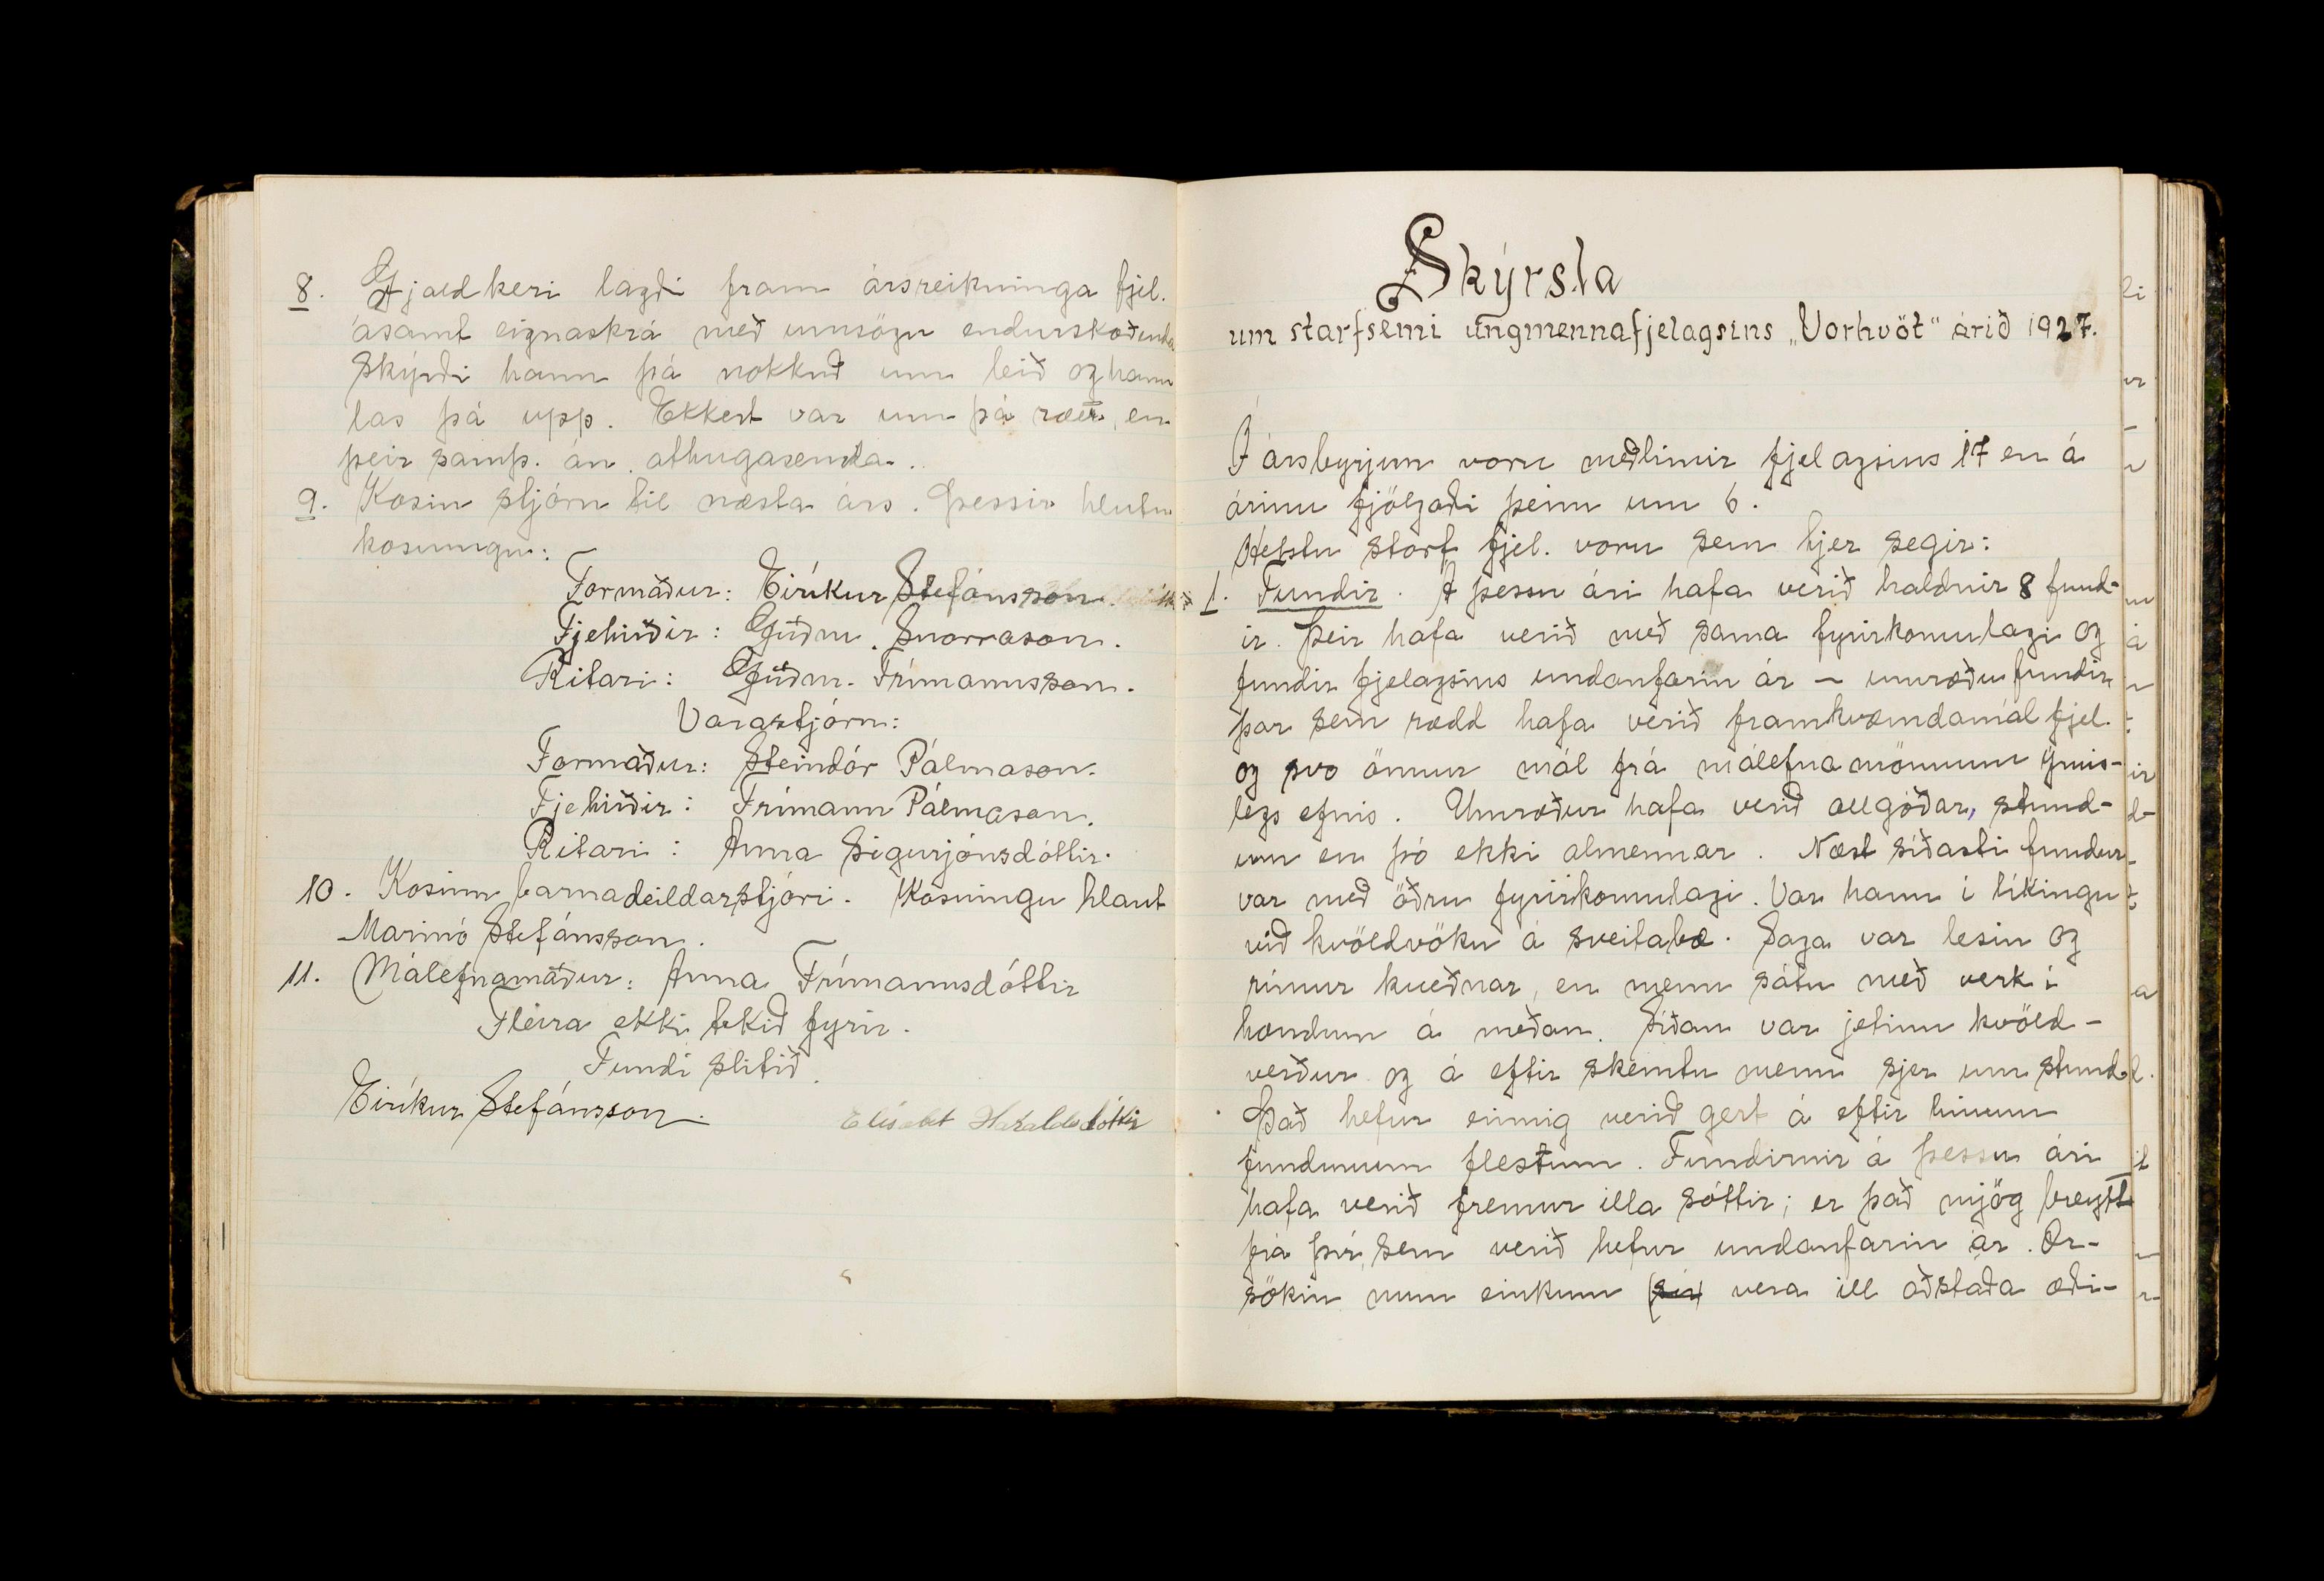 8. Gjaldkeri lagði fram ársreikninga fjel.
ásamt eignaskrá með umsögn endurskoðenda
Skýrði hann þá nokkuð um leið og hann
las þá upp. Ekkert var um þá rætt, en
þeir samþ. án athugasemda.
9. Kosin stjórn til næsta árs. Þessir hlutu
kosningu:
Formaður: Eiríkur Stefánsson.
Fjehirðir: Guðm. Snorrason.
Ritari: Guðm. Frímannsson.
Varastjórn:
Formaður: Steindór Pálmason.
Fjehirðir: Frímann Pálmason.
Ritari: Anna Sigurjónsdóttir.
10. Kosinn barnadeildarstjóri. Kosningu hlaut
Marinó Stefánsson.
11. Málefnamaður: Anna Frímannsdóttir
Fleira ekki tekið fyrir.
Fundi slitið.
Eiríkur Stefánsson.
Elísabet Haraldsdóttir
Skýrsla
um starfsemi ungmennafjelagsins „Vorhvöt" árið 1927.
Í ársbyrjun voru meðlimir fjelagsins 17 en á
árinu fjölgaði þeim um 6.
Helstu störf fjel. voru sem hjer segir:
1. Fundir. Á þessu ári hafa verið haldnir 8 fund-
ir. Þeir hafa verið með sama fyrirkomulagi og
fundir fjelagsins undanfarin ár – umræðufundir
þar sem rædd hafa verið framkvæmdamál fjel.
og svo önnur mál frá málefnamönnum ýmis-
legs efnis. Umræður hafa verið allgóðar, stund-
um en þó ekki almennar. Næst síðasti fundur
var með öðru fyrirkomulagi. Var hann í líkingu
við kvöldvöku á sveitabæ. Saga var lesin og
rímur kveðnar, en menn sátu með verk í
höndum á meðan. Síðan var jetinn kvöld-
verður og á eftir skemtu menn sjer um stund.
Það hefur einnig verið gert á eftir hinum
fundunum flestum. Fundirnir á þessu ári
hafa verið fremur illa sóttir; er það mjög breytt
frá því, sem verið hefur undanfarin ár. Or-
sökin mun einkum vera ill aðstaða æði-